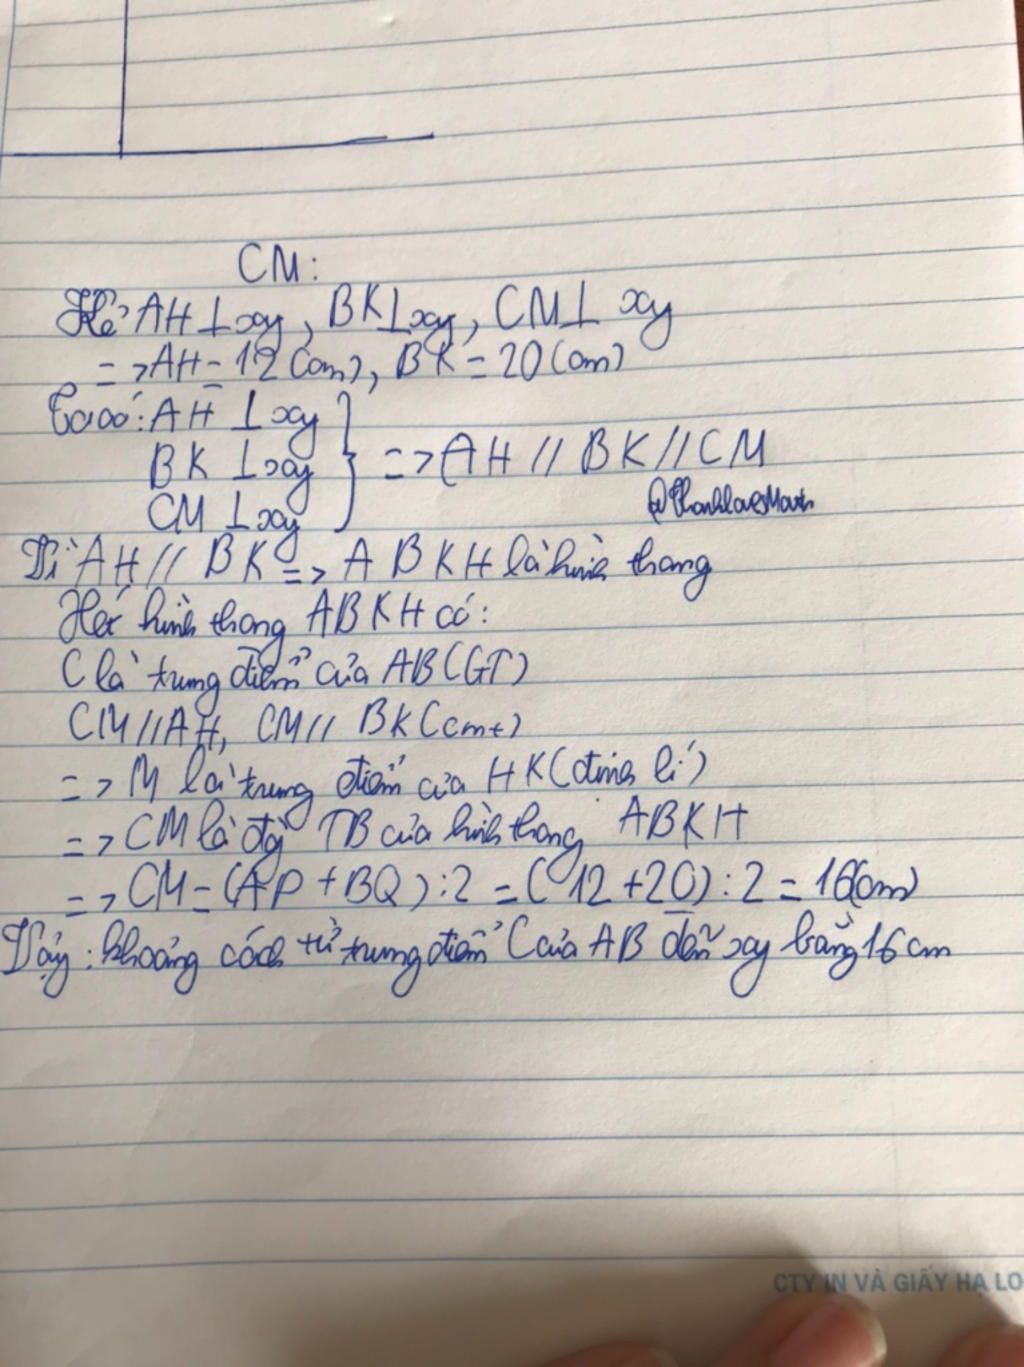 CM:
Kẻ AH ⊥ xy, BK ⊥ xy, CM ⊥ xy
=> AH = 12 (cm), BK = 20 (cm)
Ta có: AH ⊥ xy
BK ⊥ xy
CM ⊥ xy
} => AH // BK // CM
@ThanhlovesMath
Vì AH // BK => ABKH là hình thang
Xét hình thang ABKH có:
C là trung điểm của AB (GT)
CM // AH, CM // BK (cmt)
=> M là trung điểm của HK (định lí)
=> CM là đg TB của hình thang ABKH
=> CM = (AP + BQ) : 2 = (12 + 20) : 2 = 16 (cm)
Vậy: khoảng cách từ trung điểm C của AB đến xy bằng 16 cm
CTY IN VÀ GIẤY HẠ LO